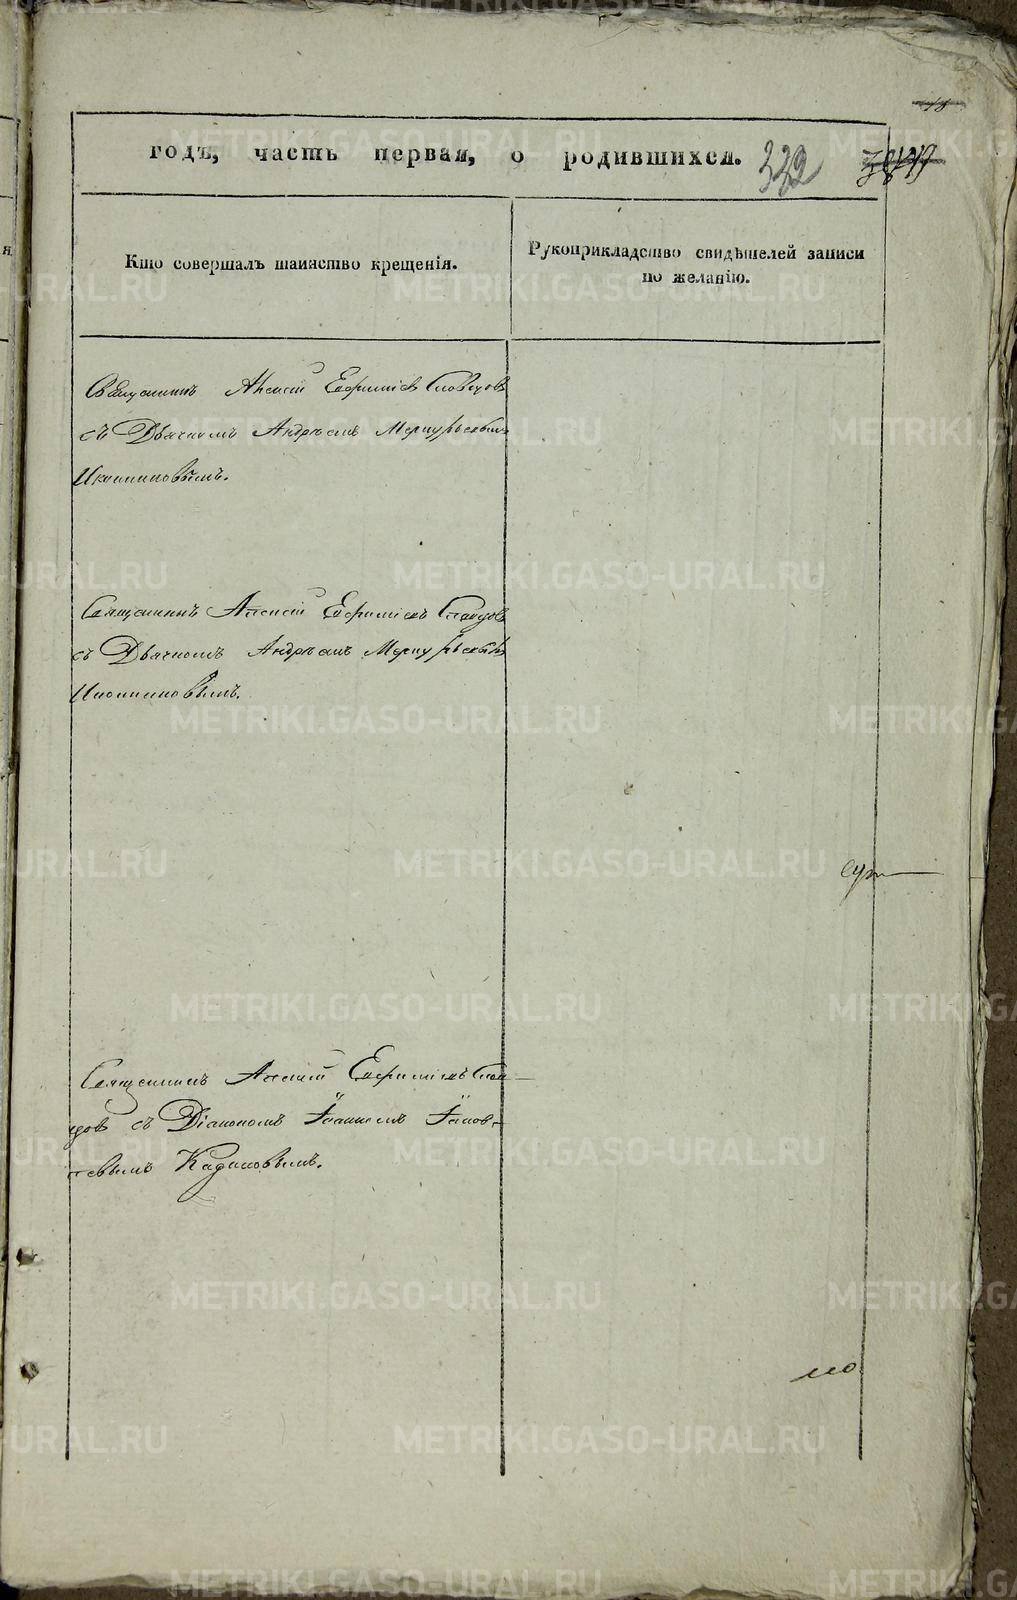 годъ, часть первая, о родившихся. 332
Кто совершалъ таинство крещенія.
Рукоприкладство свидѣтелей записи
по желанію.
Священникъ Алексій Евфиміевъ Словцовъ
съ Дьячкомъ Андреемъ Меркурьевымъ
Иконниковымъ.
Священникъ Алексій Евфиміевъ Словцовъ
съ Дьячкомъ Андреемъ Меркурьевымъ
Иконниковымъ.
Священникъ Алексій Евфиміевъ Слов-
цовъ съ Діакономъ Іоанномъ Іаков-
левымъ
METRIKI.GASO-URAL.RU